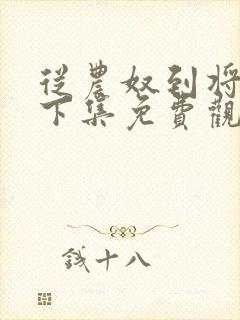 從農奴到將
下集免費觀
錢十八